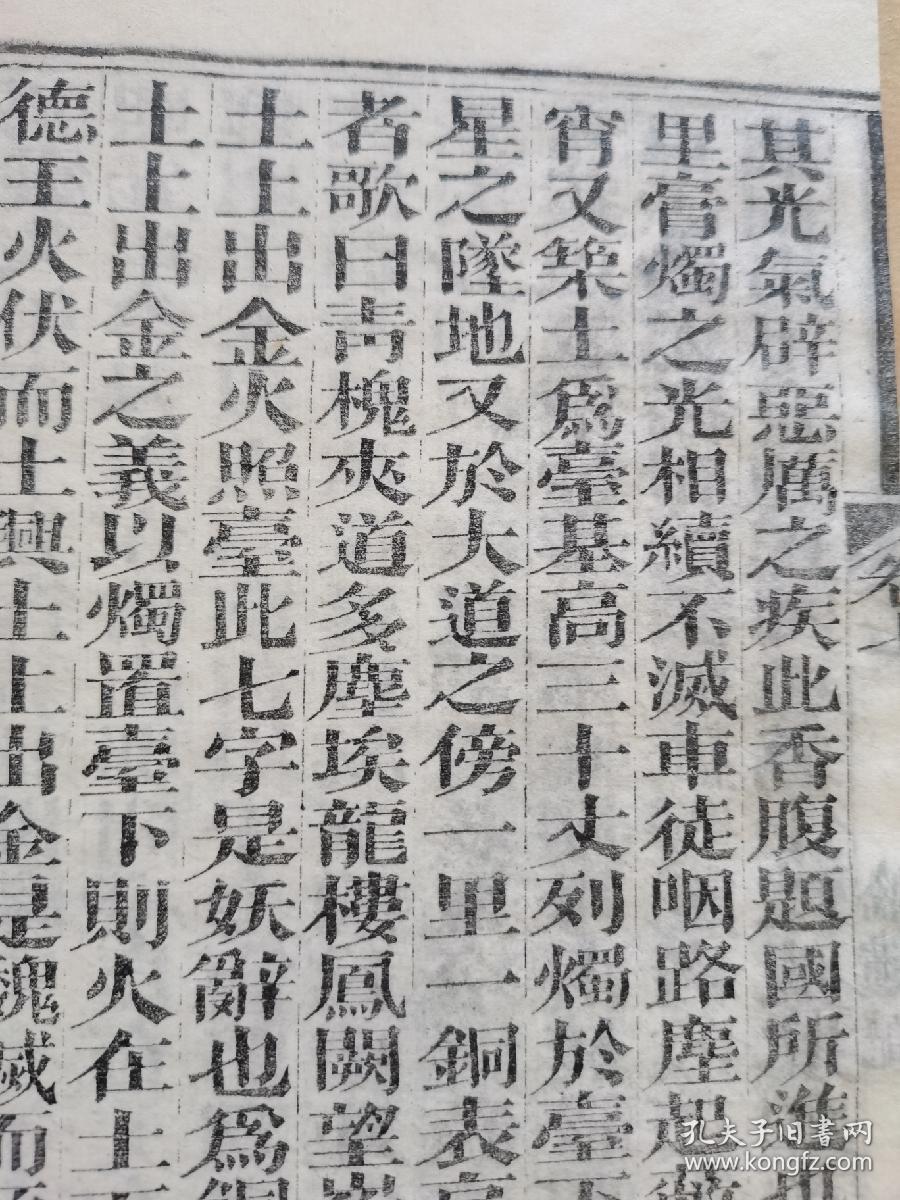 其光氣辟惡厲之疾此香腹題國所進
里膏燭之光相續不滅車徒咽路塵起
宵又築土爲臺基高三十丈列燭於臺下
星之墜地又於大道之傍一里一銅表高
者歌曰靑槐夾道多塵埃龍樓鳳闕望
土上出金火照臺此七字是妖辭也爲銅
土上出金之義以燭置臺下則火在土
德王火伏而土興土上出金是魏滅而
孔夫子旧书网
www.kongfz.com